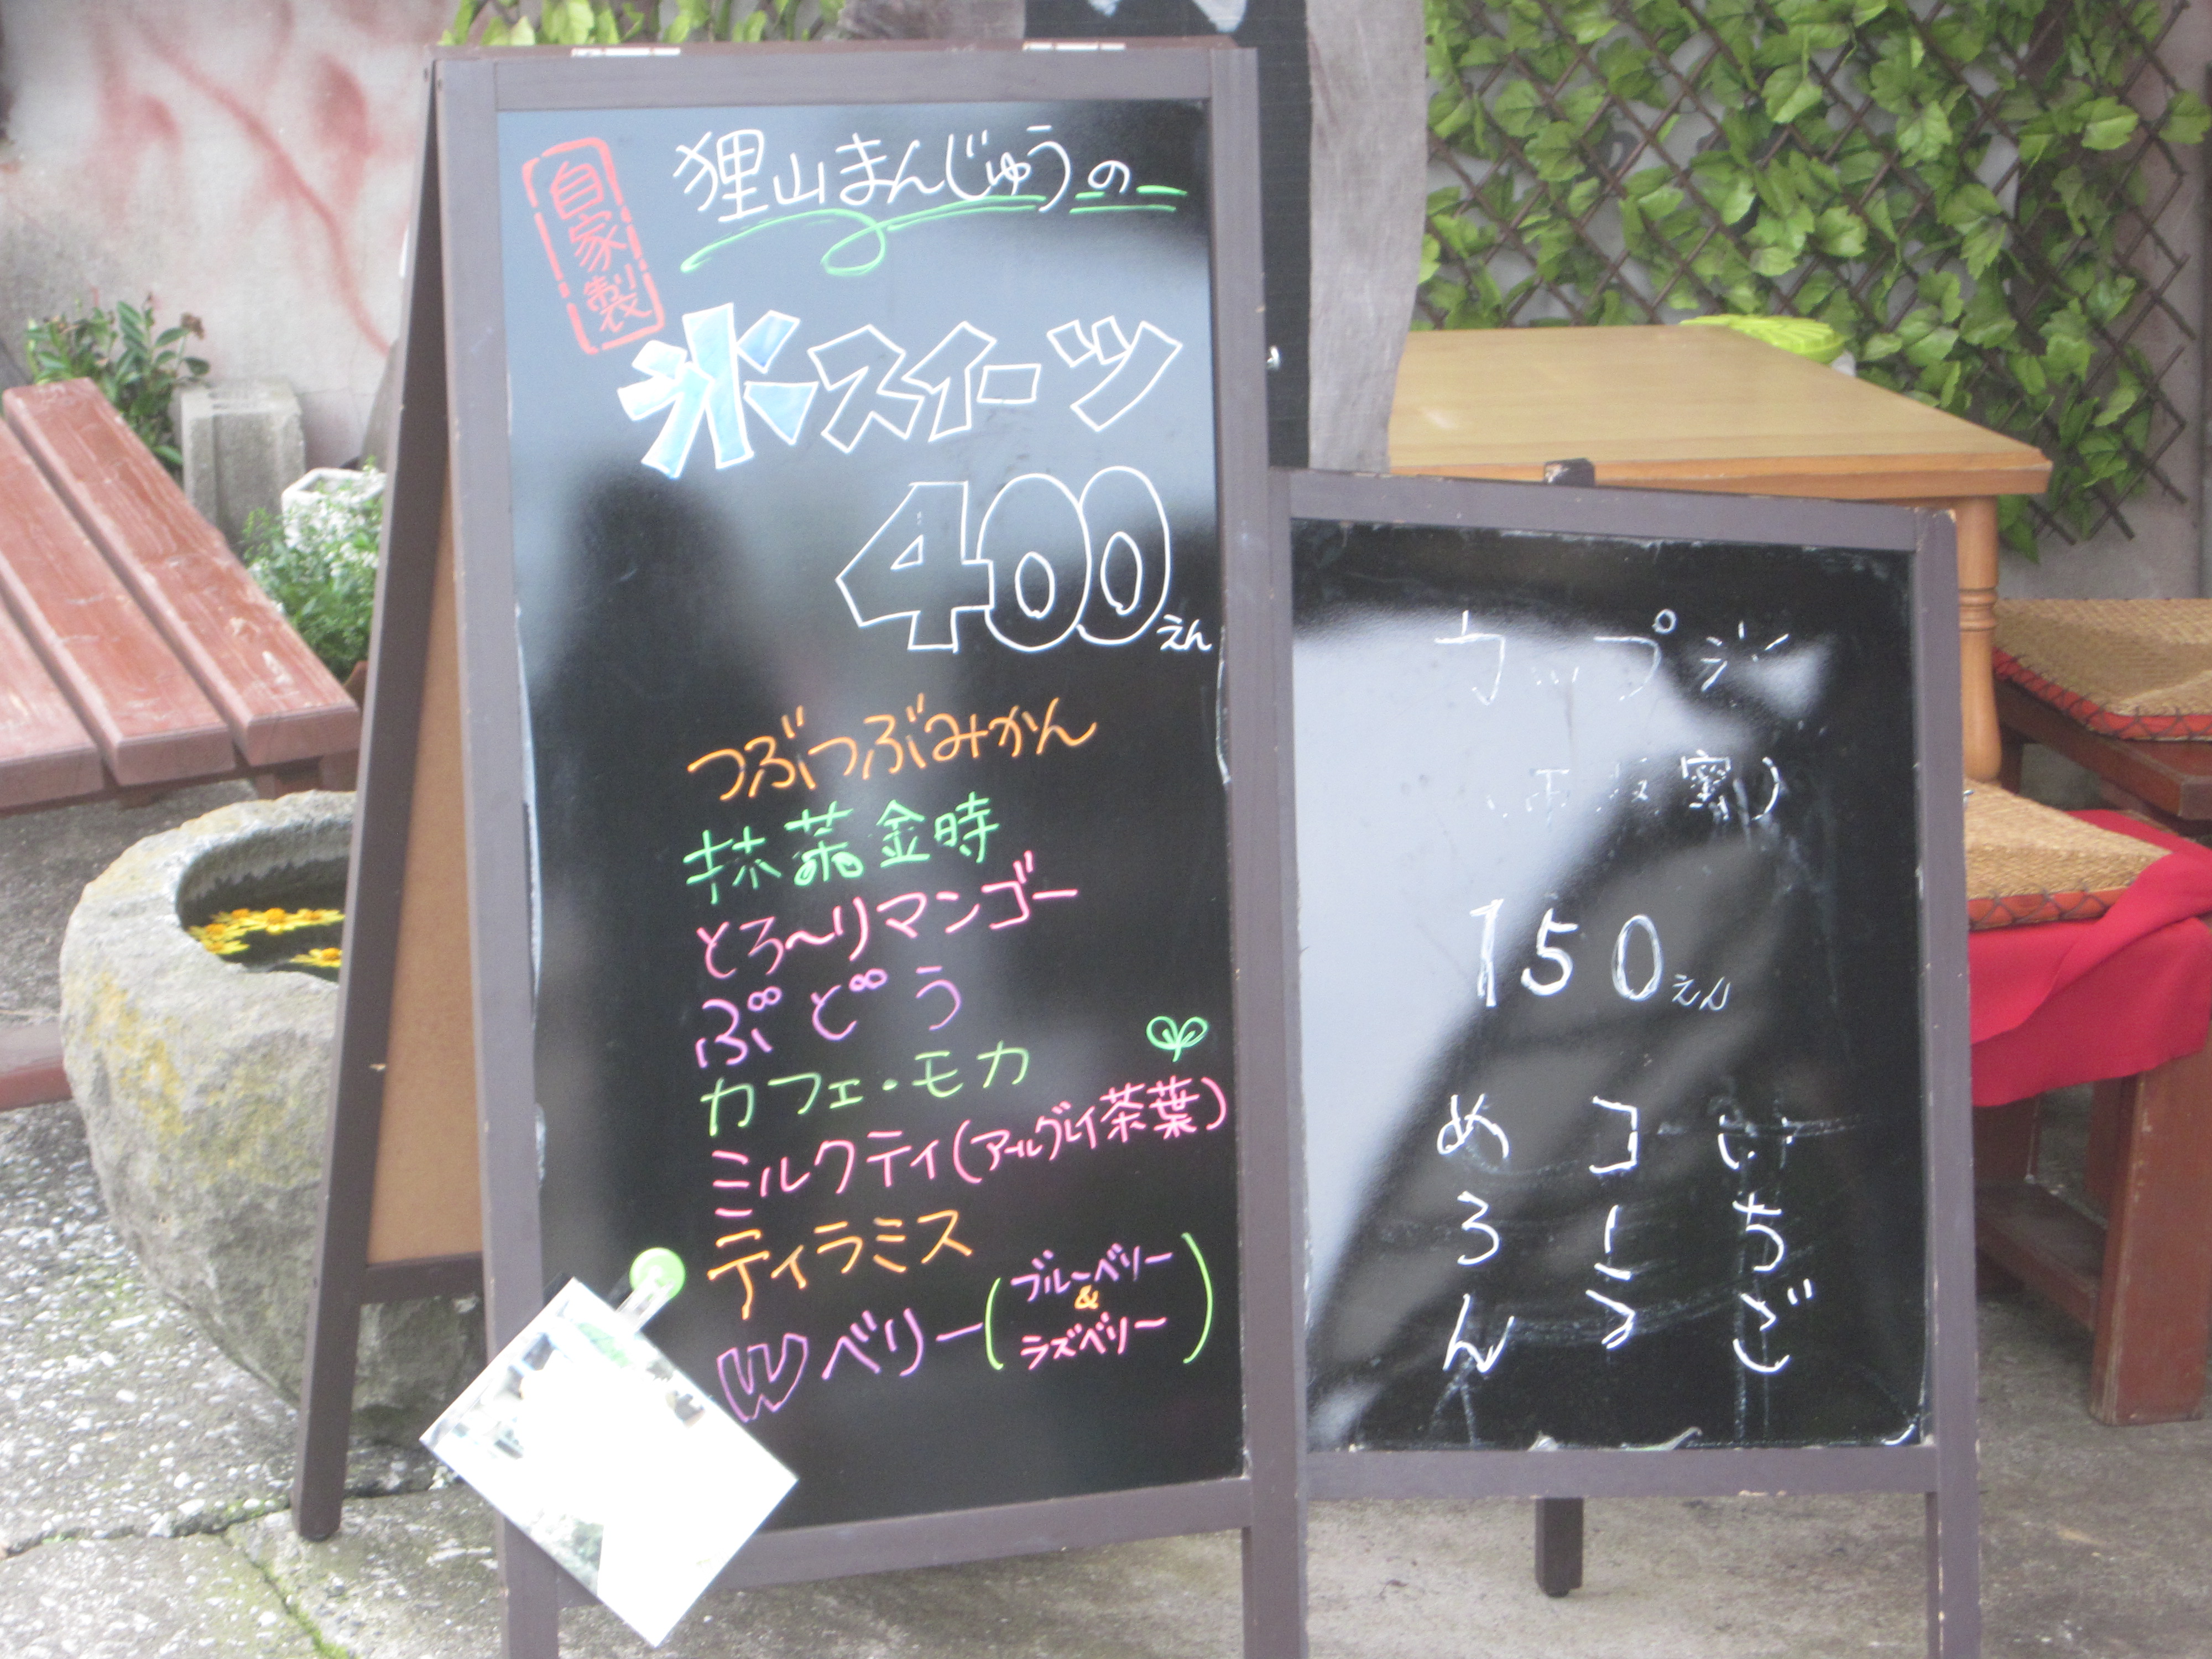 自家製
狸山まんじゅうの
氷スイーツ
400えん
つぶつぶみかん
抹茶金時
とろ〜りマンゴー
ぶどう
カフェ・モカ
ミルクティ(アールグレイ茶葉)
ティラミス
Wベリー(ブルーベリー
&
ラズベリー)
カップ氷
蜜)
150えん
いちご
コーラ
めろん